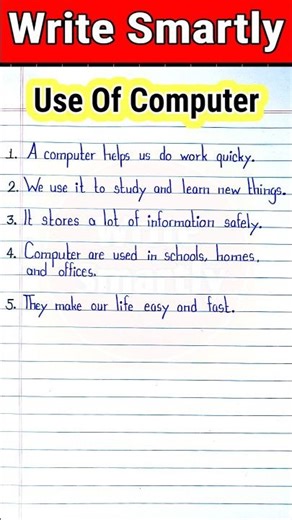 Write Smartly
Use Of Computer
1. A computer helps us do work quicky.
2. We use it to study and learn new things.
3. It stores a lot of information safely.
4. Computer are used in schools, homes,
and offices.
5. They make our life easy and fast.